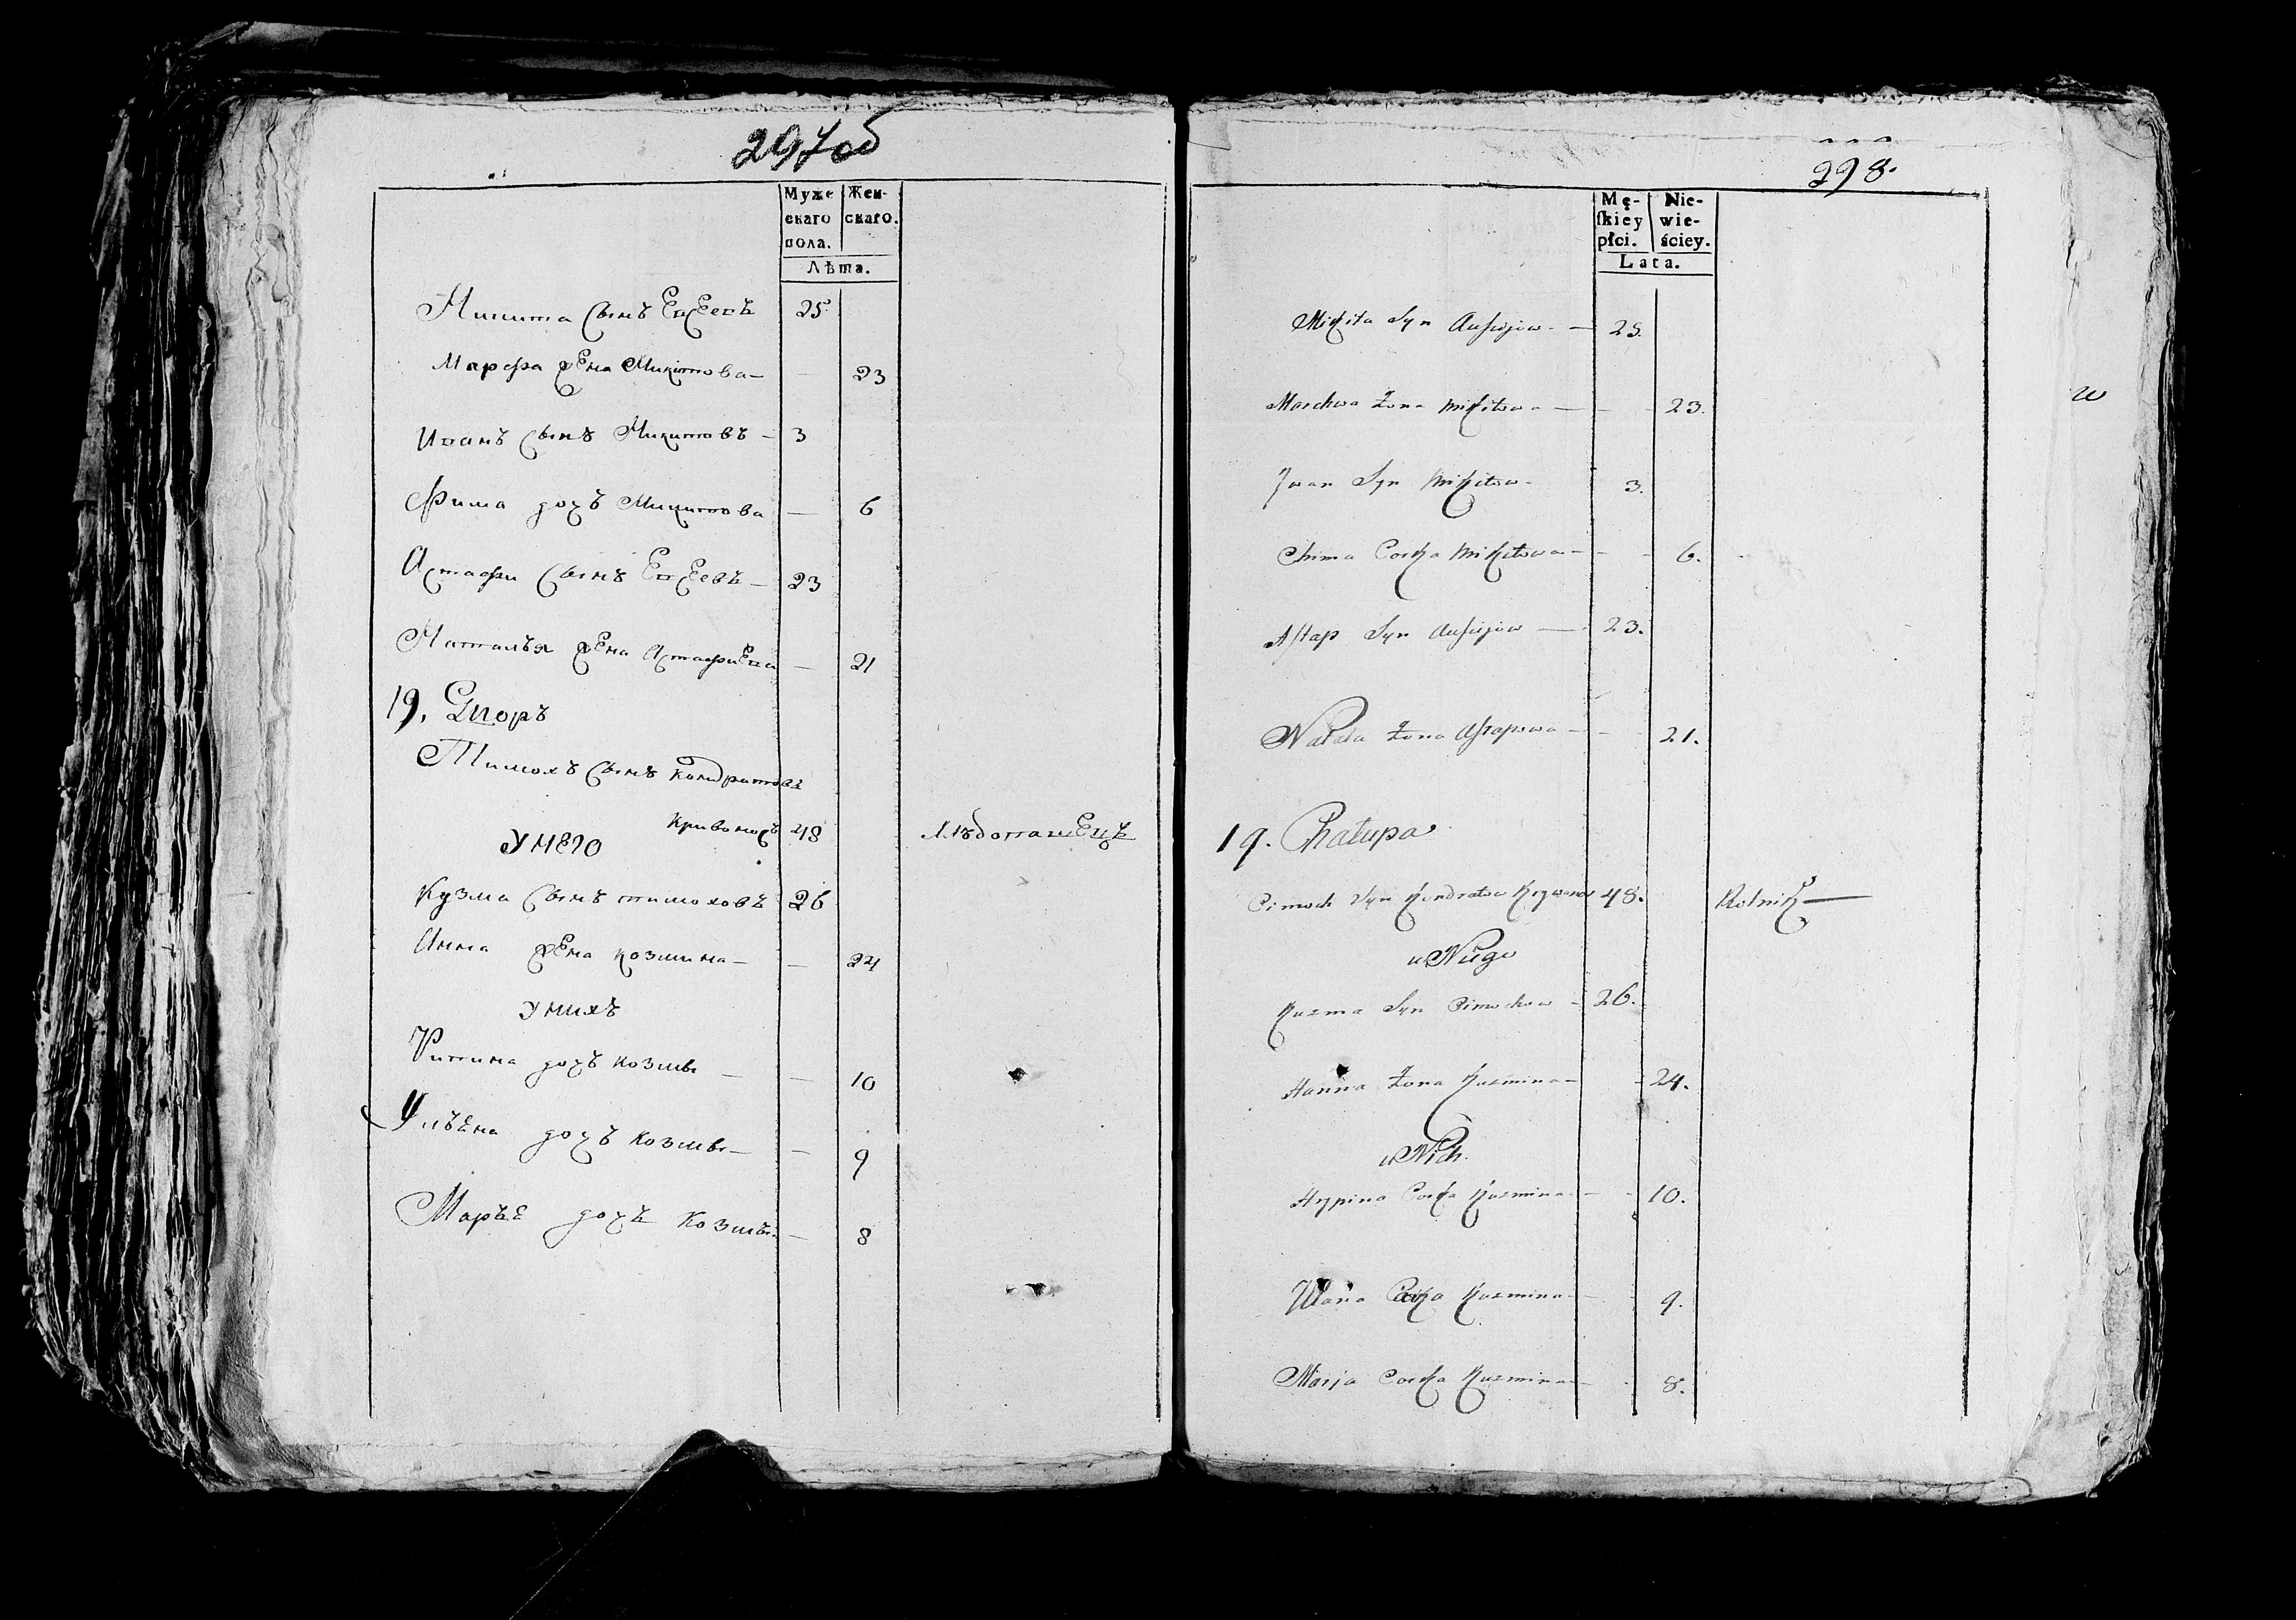 297об
Муже
скаго
пола.
Жен-
скаго.
Лѣта.
Микита сынъ Евсеевъ 25
Марфа жена Микитова — — 23
Иванъ сынъ Микитовъ — 3
Фима дочъ Микитова — 6
Астафи сынъ Евсеевъ — 23
Наталья жена Астафиева — 21
19. Дворъ
Тимохъ сынъ Кондратовъ
Кривоносъ 48 Хлѣбопашецъ
У него
Кузма сынъ тимоховъ 26
Анна жена козмина — — 24
У нихъ
дочъ козмы — — 10
Ульяна дочъ козмы — — 9
Марья дочъ козмы — 8
298.
Mę-
ſkiey
płci.
Nie-
wie-
ściey.
Lata.
Mikita Syn — 25.
Marchwa Żona Mikitowa — — - 23.
Jwan Syn Mikitow - 3.
Chima Corka Mikitowa - - - 6.
Aſtap Syn — 23.
Natala Żona Aſtapowa - - 21.
19. Chałupa
Cimoch Syn Kondratow 48. Rolnik —
u Niego
Kuzma Syn Cimochow - 26.
Hanna Żona Kuzmina - - 24.
u Nich.
Hrypina Corka Kuzmina - - - 10.
Ulana Corka Kuzmina - - 9.
Marja Corka Kuzmina - - 8.
w